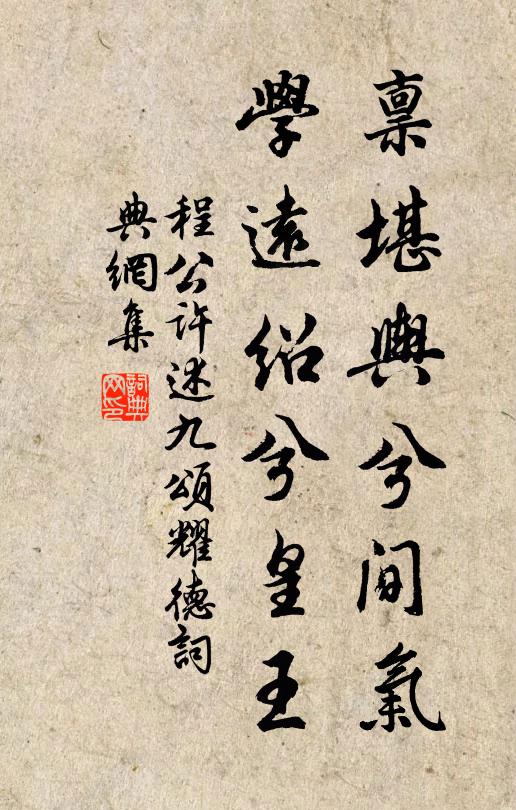 稟堪輿兮間氣
學遠紹兮皇王
程公許述九頌耀德詞
典網集
詞典網印